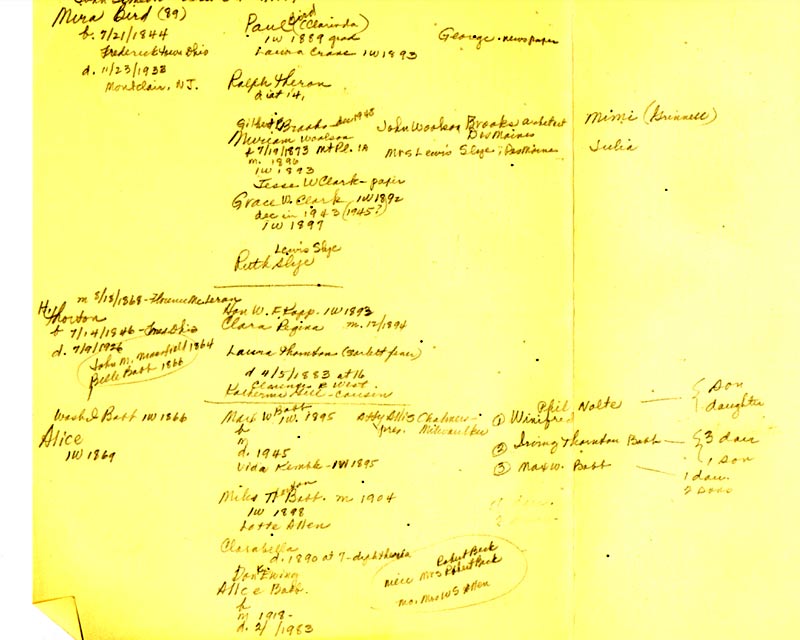 Mira Bird (89)
b. 7/21/1844
d. 11/23/1933
Montclair, N.J.
Bird
Paul (Clarinda)
IW 1889 grad
Laura Crane IW 1893
George - newspaper
Ralph Theron
d at 14,
Gilbert Brooks dec 1945
Miriam Woolson
b 7/19/1873 Mt Pl. IA
m. 1896
IW 1893
John Woolson Brooks architect
Des Moines
Mrs Lewis Slye, Des Moines
Mimi (Grinnell)
Julia
Jesse W Clark - paper
Grace V. Clark IW 1892
dec in 1943 (1945?)
IW 1897
Lewis Slye
Ruth Slye
m 8/18/1868 - Florence
H. Thornton
b 7/14/1846 - Ohio
d. 7/9/1926
John M. Mansfield 1864
Belle Babb 1866
Hon W. F. Kopp - IW 1893
Clara Regina m. 12/1894
Laura Thornton (Scarlet fever)
d 4/5/1883 at 16
Clarence E West
Katherine Hill - cousin
Wash I Babb IW 1866
Alice
IW 1869
Babb
Max W. IW. 1895
b
m
d. 1945
Vida Kemble - IW 1895
Atty Allis Chalmers
pres. Milwaukee
Phil Nolte
① Winifred
{ Son
daughter
② Irving Thornton Babb
{ 3 dau
1 son
③ Max W. Babb
1 dau.
2 sons
Miles Thornton Babb. m 1904
IW 1898
Lotte Allen
Clarabella
d. 1890 at 7 - diphtheria
Don Ewing
Alice Babb.
b
m 1918 -
d. 2/ /1983
Robert Beck
niece Mrs Robert Beck
mo. Mrs W S Allen